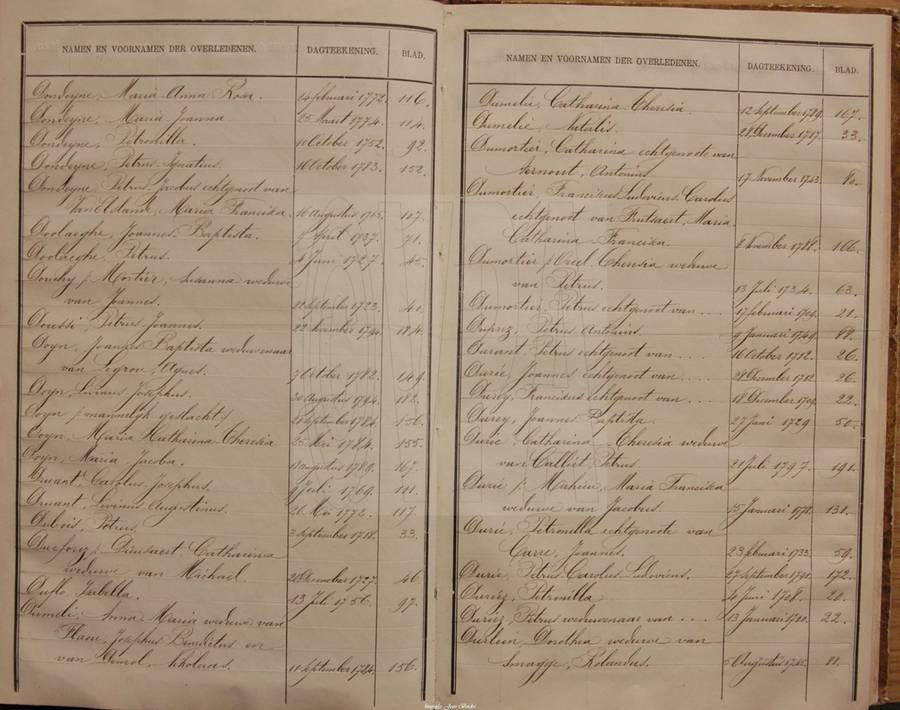 NAMEN EN VOORNAMEN DER OVERLEDENEN. DAGTEEKENING. BLAD.
Dondeyne, Maria Anna Rosa. 14 februari 1772. 116.
Dondeyne, Maria Joanna 25 Maart 1774. 114.
Dondeyne, Petronilla. 10 October 1752. 92.
Dondeyne, Petrus Ignatius. 16 October 1783. 152.
Dondeyne, Petrus Jacobus echtgenoot van
Van Elslande, Maria Franciska. 16 Augustus 1765. 107.
Doolaeghe, Joannes Baptista. April 1737. 71.
Doolaeghe, Petrus. 4 Juni 1727. 45.
Mortier, Susanna weduwe
van Joannes. 22 september 1723. 41.
Doussi, Petrus Joannes. 22 November 1794. 184.
Doyn, Joannes Baptista weduwnaar
van Legrou, Agnes. 7 October 1782. 149.
Doyn, Livinus Josephus. 30 Augustus 1794. 182.
Doyn / mannelijk geslacht / 21 september 1784. 156.
Doyn, Maria Catharina Theresia 25 Mei 1784. 155.
Doyn, Maria Jacoba. augustus 1789. 167.
Druant, Carolus Josephus. 9 Juli 1769. 111.
Druant, Livinus Augustinus. 26 Mei 1772. 117.
Dubois, Petrus 3 september 1718. 33.
Catharina
weduwe van Michael 28 December 1727. 46.
Duflo, Isabella. 13 Juli 1756. 97.
Dumelie, Anna Maria weduwe van
Josephus Benedictus en
van 11 september 1784. 156.
NAMEN EN VOORNAMEN DER OVERLEDENEN. DAGTEEKENING. BLAD.
Dumelie, Catharina Theresia 12 September 1789. 167.
Dumelie, Natalis. 28 December 1717. 33.
Dumortier, Catharina echtgenoote van
Antonius 17 November 1743. 80.
Dumortier, Franciscus Ludovicus Carolus
echtgenoot van Maria
Catharina Franciska. 8 November 1788. 166.
Dumortier / Theresia weduwe
van Petrus. 13 Juli 1734. 63.
Dumortier, Petrus echtgenoot van . . . 17 februari 1709. 21.
Duprez, Petrus Antonius. 9 Januari 1749. 88.
Durant, Petrus echtgenoot van . . . 16 October 1712. 26.
Durie, Joannes echtgenoot van . . . . 28 December 1712. 26.
Durey, Franciscus echtgenoot van . . . 18 December 1709. 22.
Durey, Joannes Baptista 27 Juni 1729. 50.
Durie, Catharina Theresia weduwe
van Calliet, Petrus. 21 Juli 1797. 191.
Durie / Mahieu, Maria Franciska
weduwe van Jacobus. 15 Januari 1778. 131.
Durie, Petronilla echtgenoote van
Carre, Joannes. 23 februari 1733. 59.
Durie, Petrus Carolus Ludovicus. 27 september 1790. 172.
Duriez, Petronilla 4 Juni 1708. 20.
Duriez, Petrus weduwnaar van . . . 13 Januari 1710. 22.
Dorothea weduwe van
Smagge, Rolandus. 5 Augustus 1745. 81.